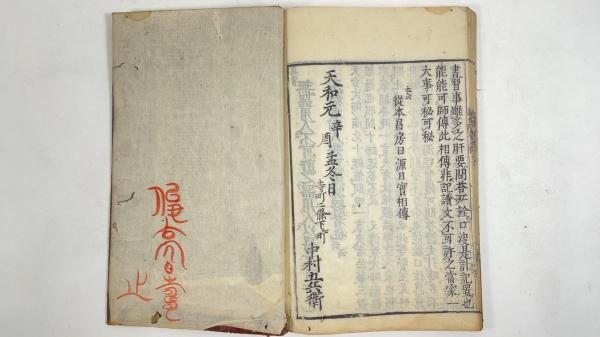 書習事雖多之肝要問答此詮口没是計記置也
能能可師傳此相傳非記讀文不可許之當家一
大事可秘可秘
本云
從本昌房日源目實相傳
天和元辛酉孟冬日
寺町二條下町
中村五兵衛
止